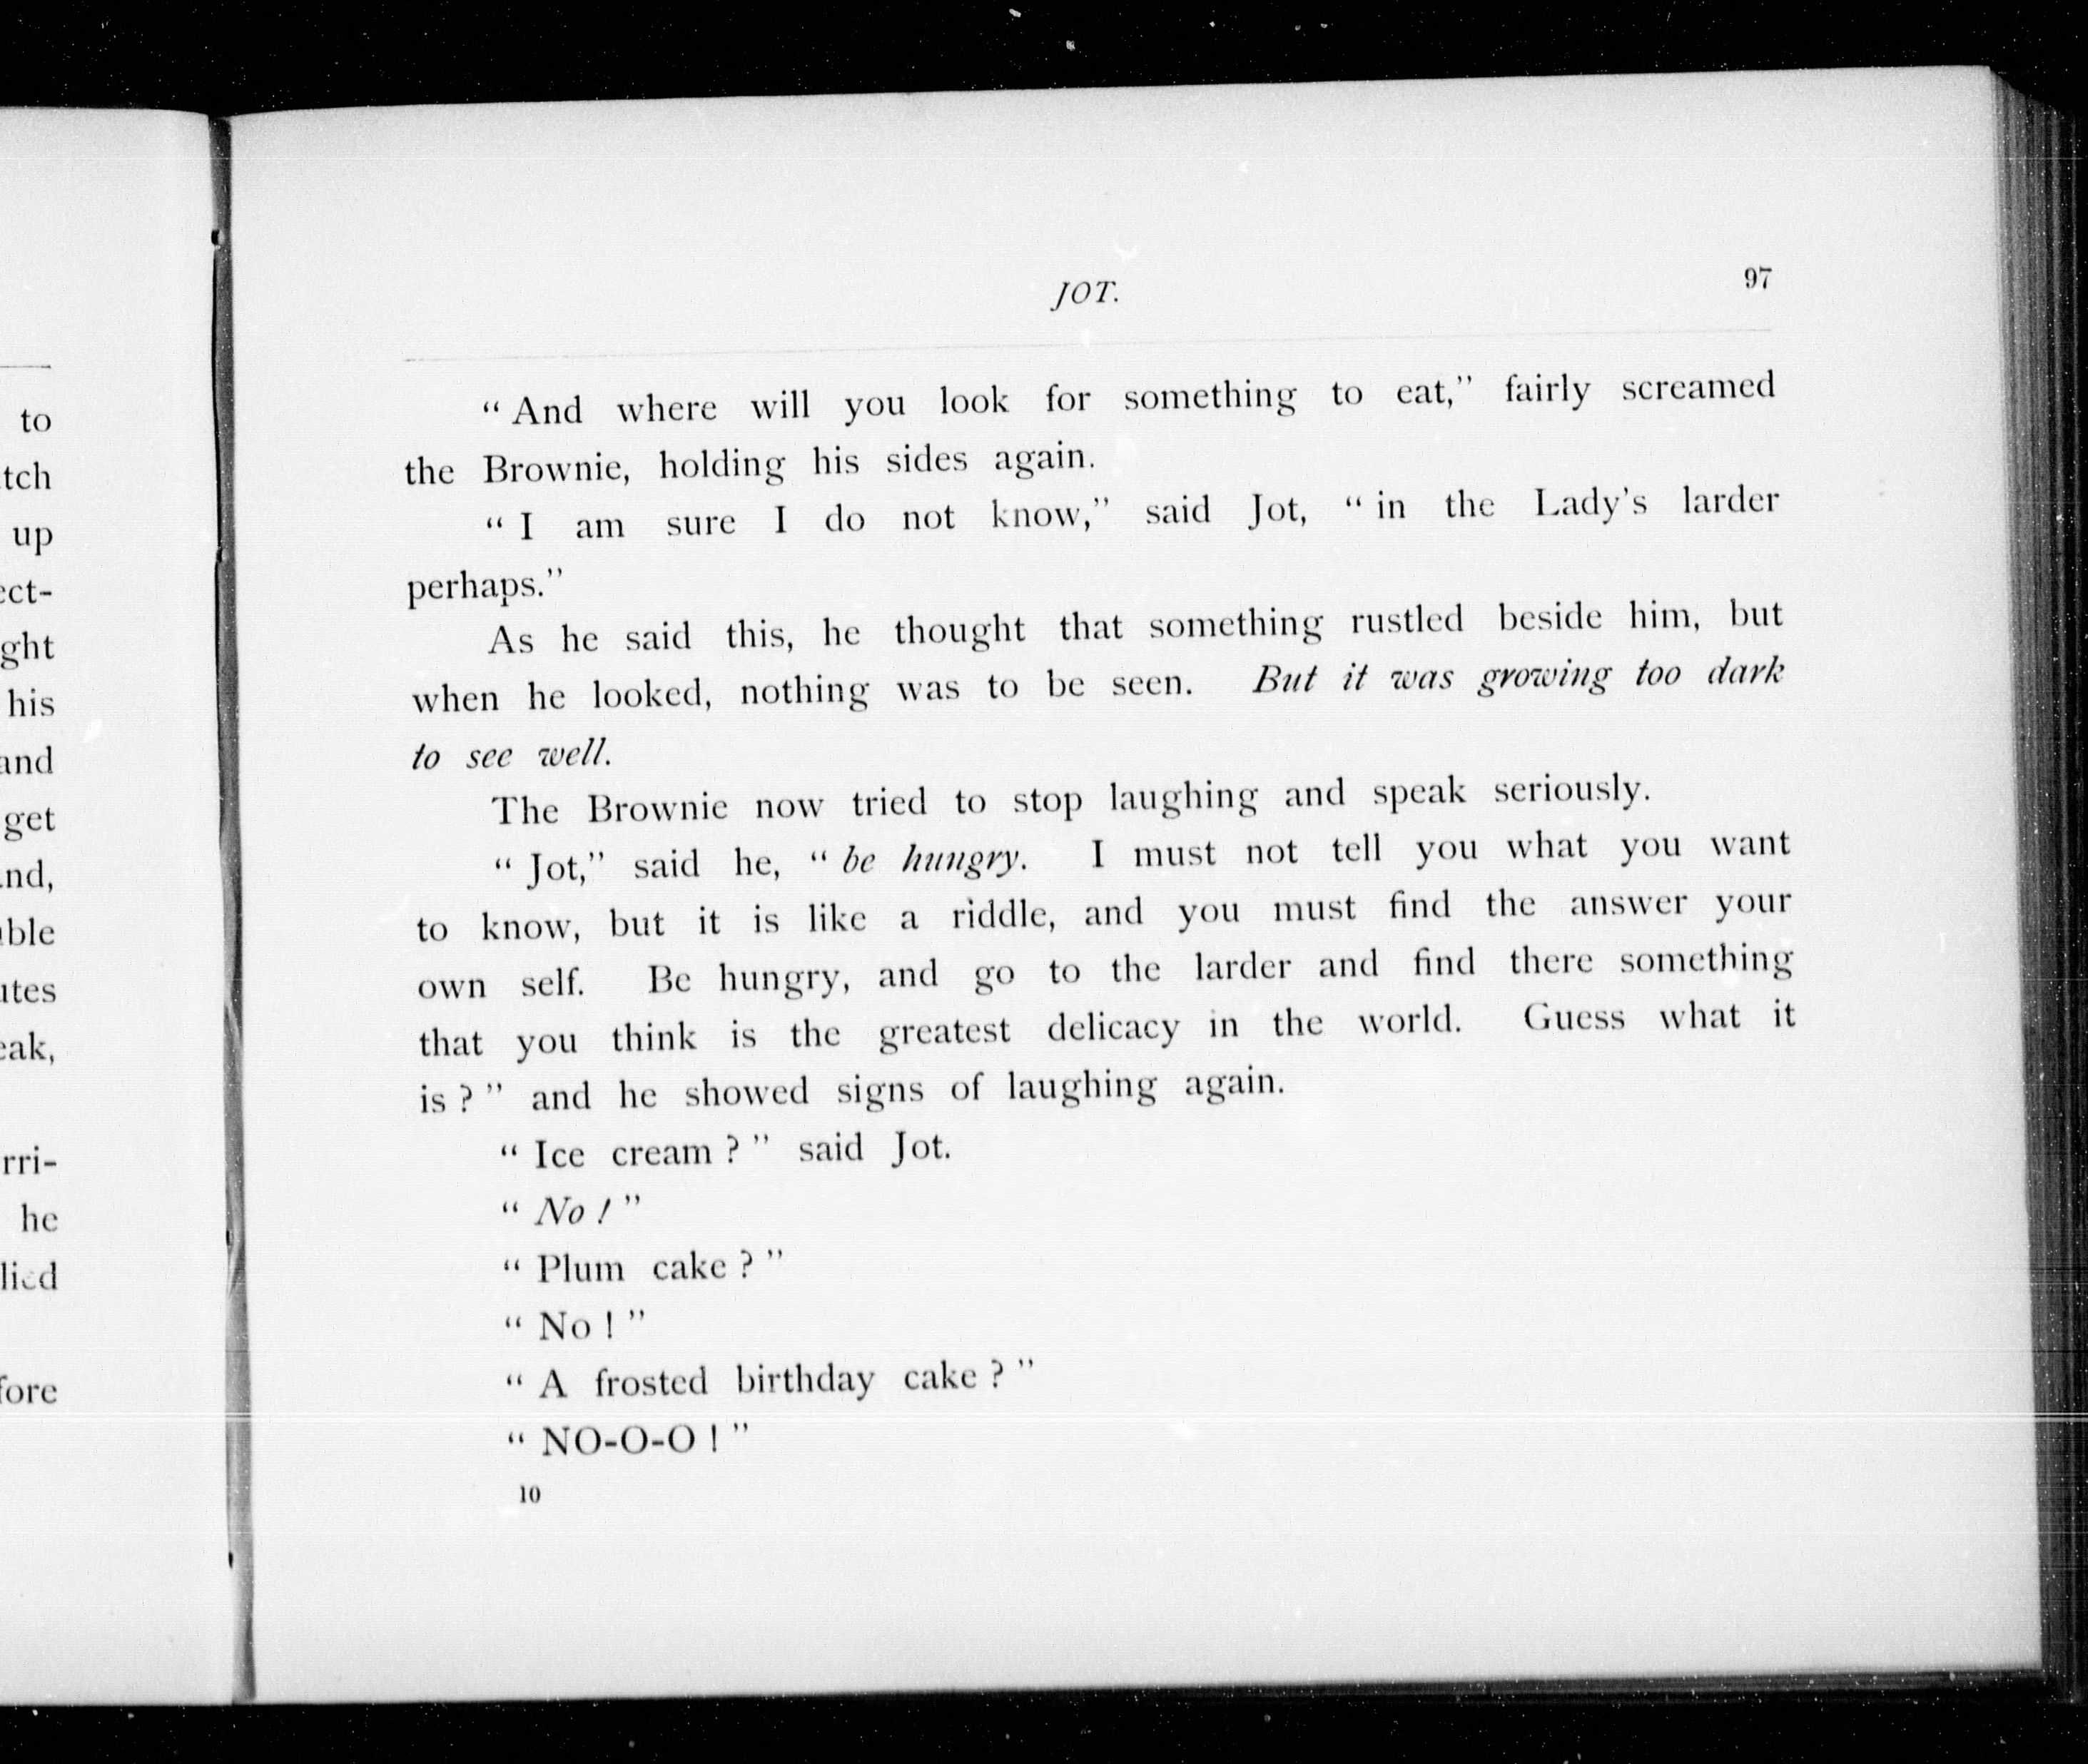 to
up
his
get
he
JOT.
97
“ And where will you look for something to eat,” fairly screamed
the Brownie, holding his sides again.
“ I am sure I do not know,” said Jot, “ in the Lady’s larder
perhaps.”
As he said this, he thought that something rustled beside him, but
when he looked, nothing was to be seen. But it was growing too dark
to see well.
The Brownie now tried to stop laughing and speak seriously.
“ Jot,” said he, “ be hungry. I must not tell you what you want
to know, but it is like a riddle, and you must find the answer your
own self. Be hungry, and go to the larder and find there something
that you think is the greatest delicacy in the world. Guess what it
is ? ” and he showed signs of laughing again.
“ Ice cream ? ” said Jot.
“ No ! ”
“ Plum cake ? ”
“ No ! ”
“ A frosted birthday cake ? ”
“ NO-O-O ! ”
10